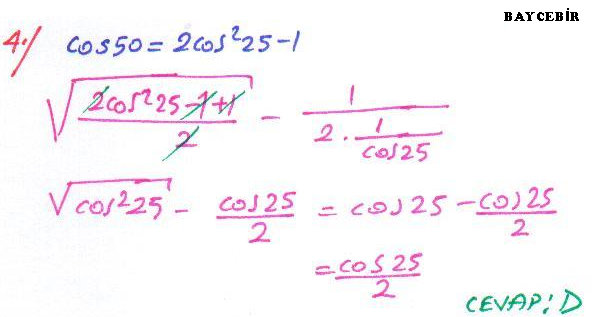 BAYCEBİR
4./ cos50 = 2cos²25-1
√((2cos²25-1+1)/2) - 1/(2 . 1/cos25)
√(cos²25) - cos25/2 = cos25 - cos25/2
= cos25/2
CEVAP: D